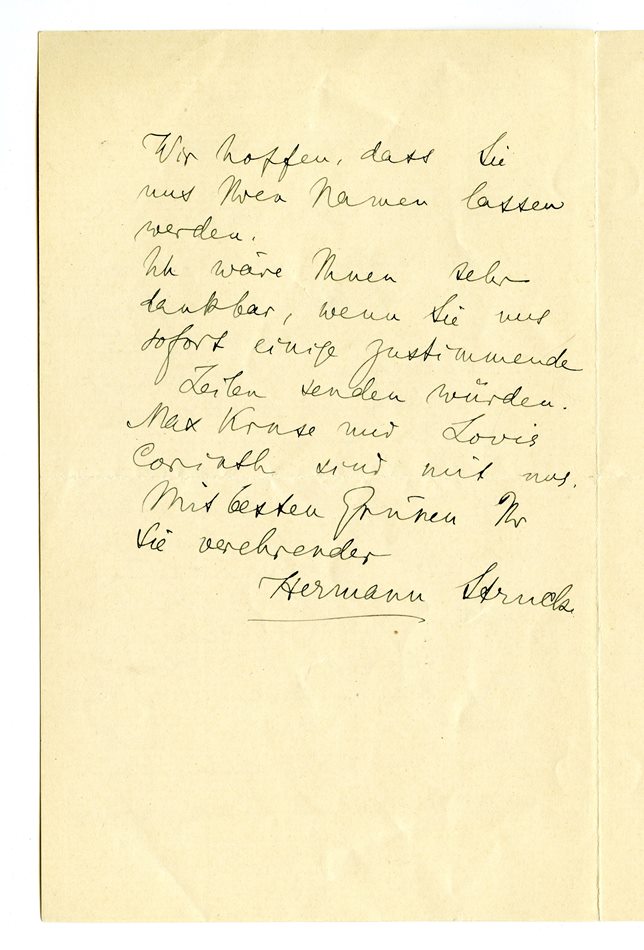 Wir hoffen, dass Sie
uns Ihren Namen lassen
werden.
Ich wäre Ihnen sehr
dankbar, wenn Sie uns
sofort einige zustimmende
Zeilen senden würden.
Max Kruse und Lovis
Corinth sind mit uns.
Mit besten Grüssen Ihr
Sie verehrender
Hermann Struck